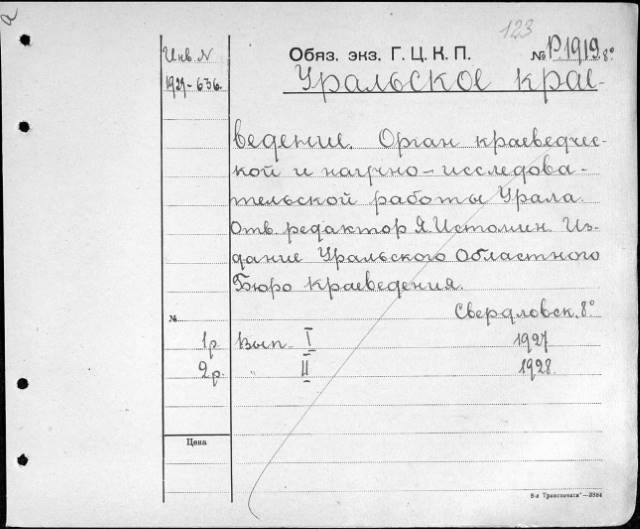 123
Инв. N
Обяз. экз. Г. Ц. К. П.
№ Р1919 8°
1927-636.
Уральское крае-
ведение. Орган краеведчес-
кой и научно-исследова-
тельской работы Урала.
Отв. редактор Я Истомин. Из-
дание Уральского Областного
Бюро краеведения.
Свердловск. 8°
№
1р Вып. I 1927
2р. " II 1928
Цена